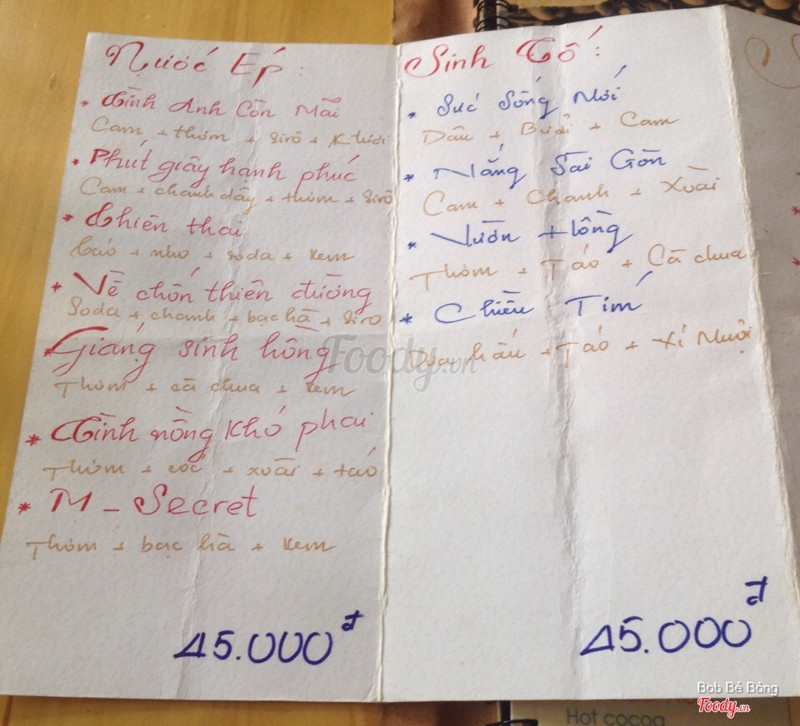 Nước Ép :
* Tình Anh Còn Mãi
Cam + thơm + siro + K tươi
* Phút giây hạnh phúc
Cam + chanh dây + thơm + siro
* Thiên thai
táo + nho + soda + kem
* Về chốn thiên đường
Soda + chanh + bạc hà + siro
* Giáng sinh hồng
Thơm + cà chua + kem
* Tình nồng khó phai
Thơm + cóc + xoài + táo
* M - Secret
Thơm + bạc hà + kem
45.000đ
Sinh Tố :
* Sức Sống Mới
Dâu + Bưởi + Cam
* Nắng Sài Gòn
Cam + Chanh + Xoài
* Vườn Hồng
Thơm + Táo + Cà chua
* Chiều Tím
Dưa hấu + Táo + Xí Muội
45.000đ
Foody.vn
Bob Bé Bỏng
Foody.vn
Hot cocoa